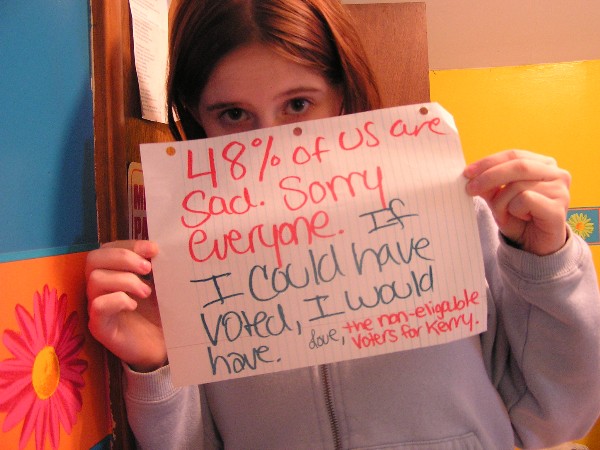 48% of US are
Sad. Sorry
everyone. If
I could have
voted, I would
have. Love, the non-eligable
voters for Kerry.